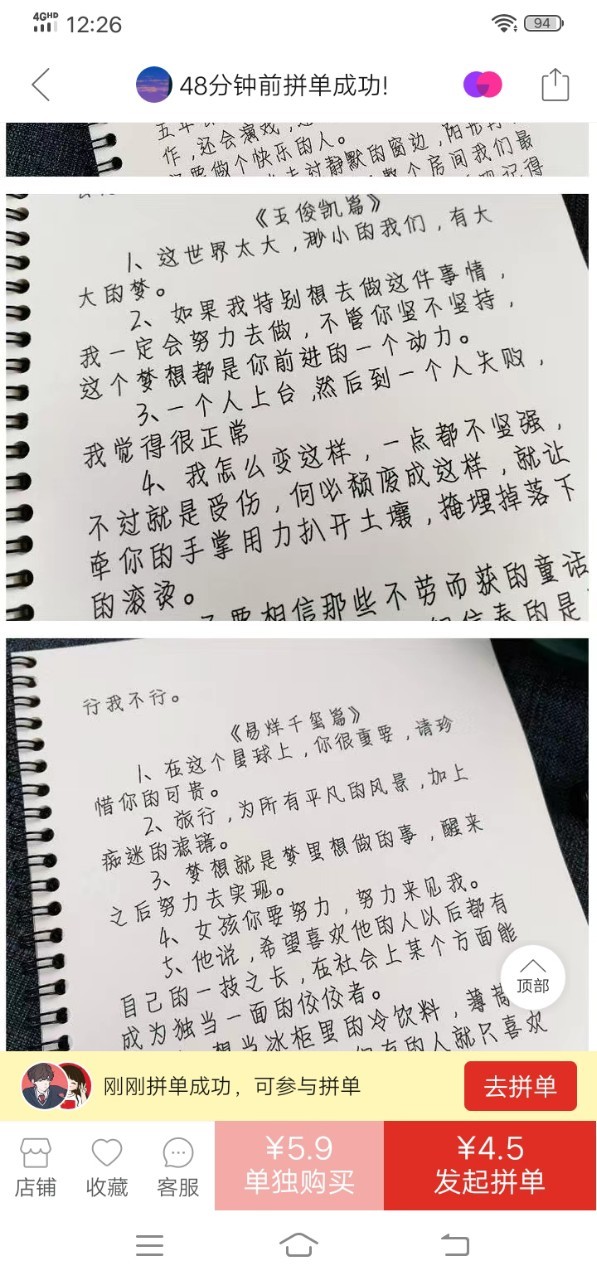 4G HD
12:26
94
48分钟前拼单成功!
作,还会演戏,
要做个快乐的人。
《王俊凯篇》
1、这世界太大,渺小的我们,有大
大的梦。
2、如果我特别想去做这件事情,
我一定会努力去做,不管你坚不坚持,
这个梦想都是你前进的一个动力。
3、一个人上台,然后到一个人失败,
我觉得很正常
4、我怎么变这样,一点都不坚强,
不过就是受伤,何必颓废成这样,就让
牵你的手掌用力扒开土壤,掩埋掉落下
的滚烫。
要相信那些不劳而获的童话
行我不行。
《易烊千玺篇》
1、在这个星球上,你很重要,请珍
惜你的可贵。
2、旅行,为所有平凡的风景,加上
痴迷的滤镜。
3、梦想就是梦里想做的事,醒来
之后努力去实现。
4、女孩你要努力,努力来见我。
5、他说,希望喜欢他的人以后都有
自己的一技之长,在社会上某个方面能
成为独当一面的佼佼者。
想当冰柜里的冷饮料,薄荷
有的人就只喜欢
顶部
刚刚拼单成功,可参与拼单
去拼单
店铺
收藏
客服
¥5.9
单独购买
¥4.5
发起拼单